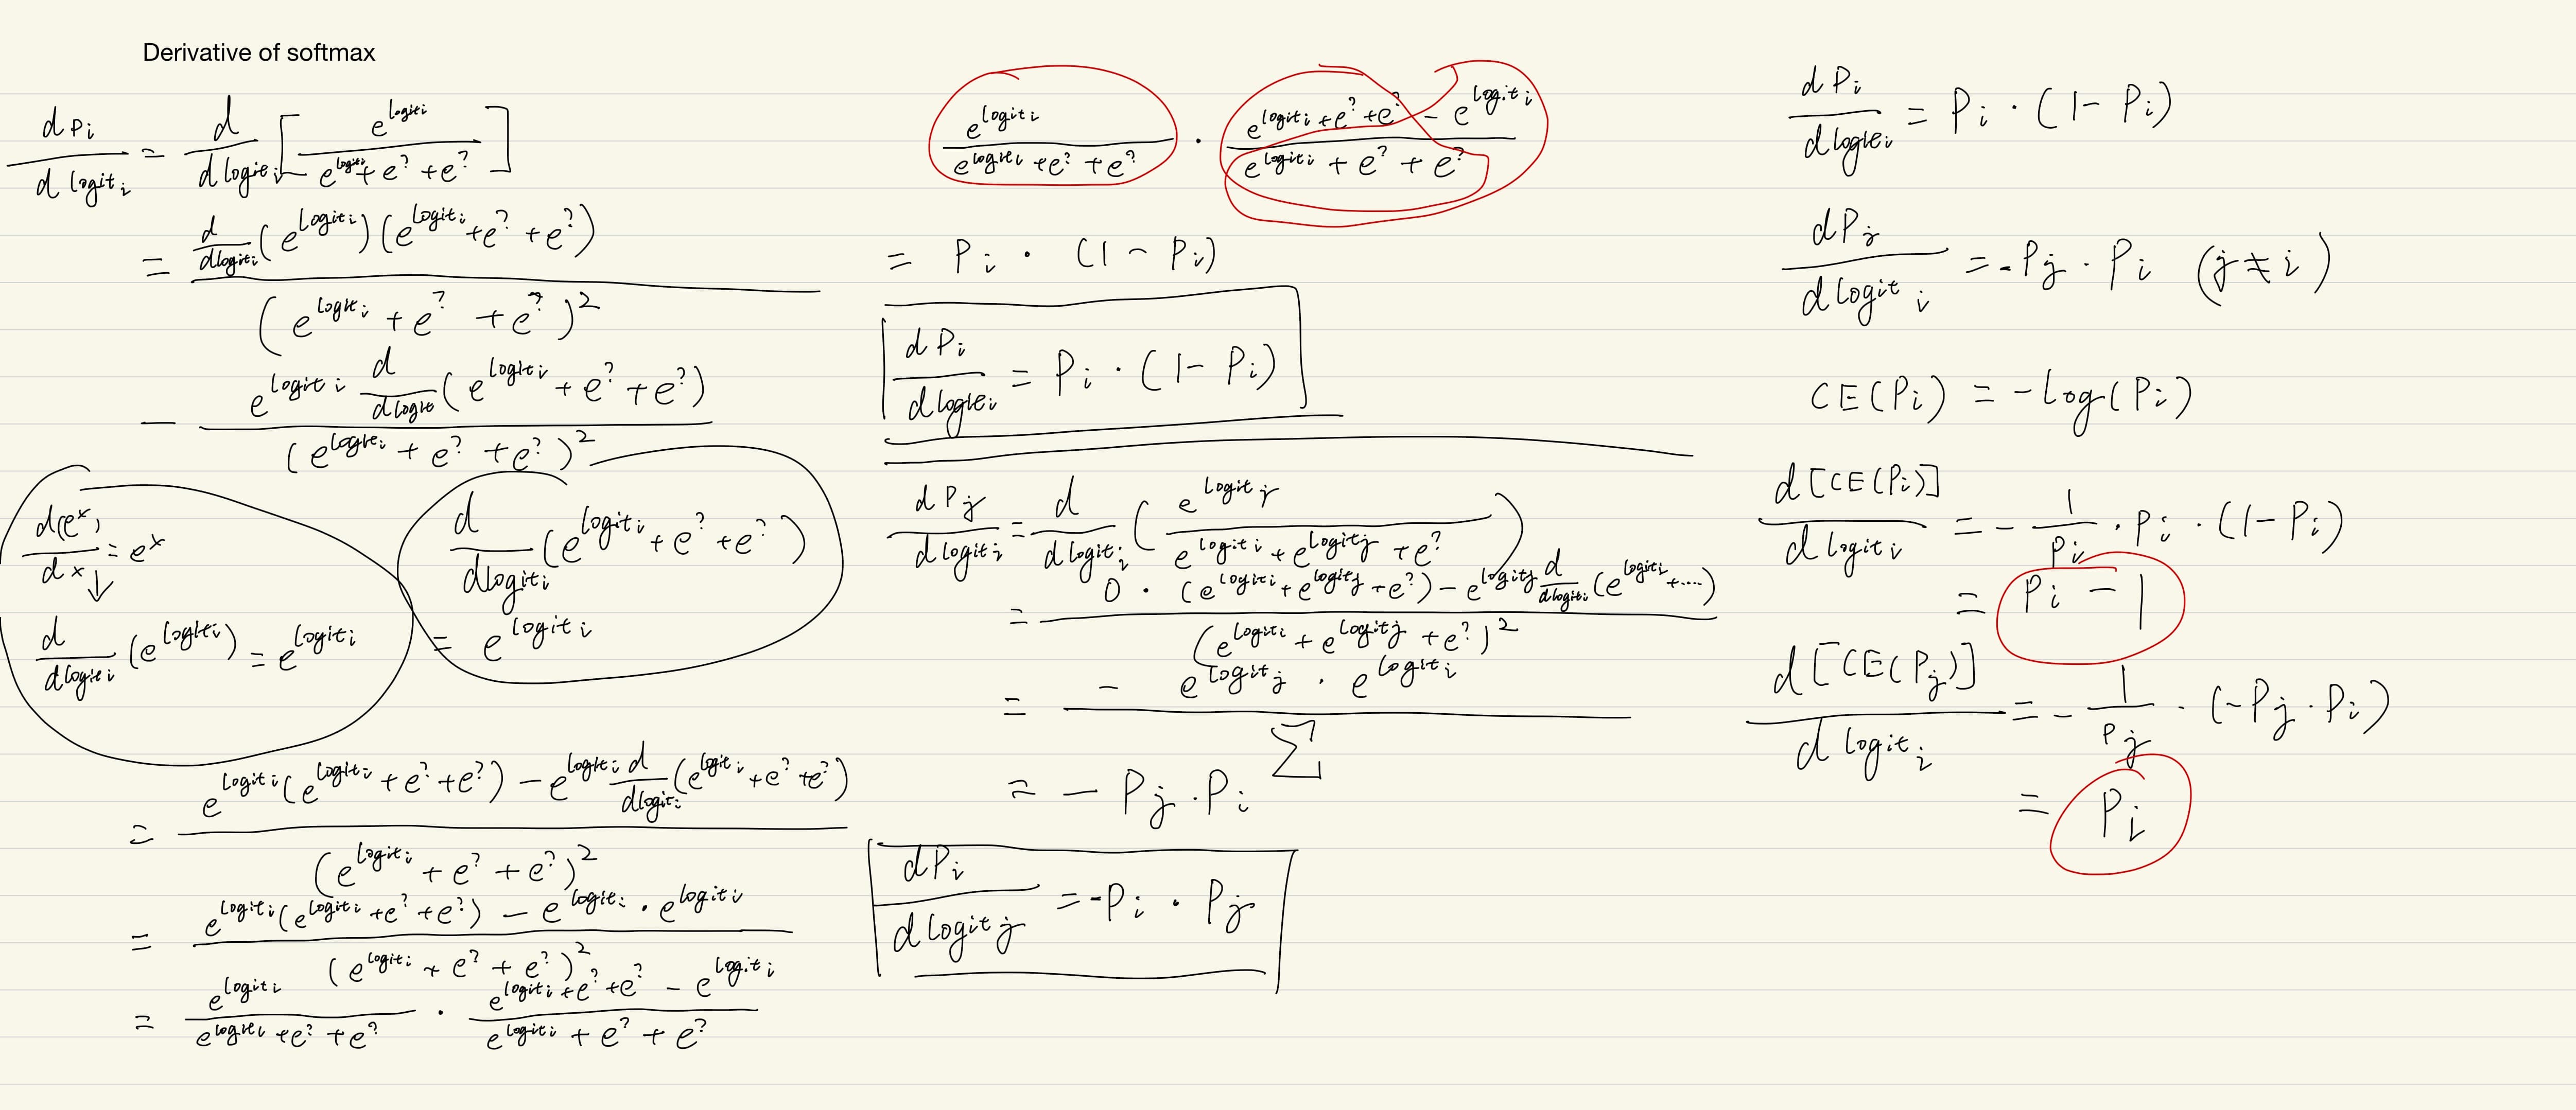 Derivative of softmax
dPi/dlogit_i = d/dlogit_i [ e^logit_i / (e^logit_i + e^? + e^?) ]
= d/dlogit_i (e^logit_i)(e^logit_i + e^? + e^?) / (e^logit_i + e^? + e^?)^2
- e^logit_i d/dlogit (e^logit_i + e^? + e^?) / (e^logit_i + e^? + e^?)^2
d(e^x)/dx = e^x
↓
d/dlogit_i (e^logit_i) = e^logit_i
d/dlogit_i (e^logit_i + e^? + e^?)
= e^logit_i
= e^logit_i (e^logit_i + e^? + e^?) - e^logit_i d/dlogit_i (e^logit_i + e^? + e^?) / (e^logit_i + e^? + e^?)^2
= e^logit_i (e^logit_i + e^? + e^?) - e^logit_i · e^logit_i / (e^logit_i + e^? + e^?)^2
= e^logit_i / (e^logit_i + e^? + e^?) · (e^logit_i + e^? + e^? - e^logit_i) / (e^logit_i + e^? + e^?)
e^logit_i / (e^logit_i + e^? + e^?) · (e^logit_i + e^? + e^? - e^logit_i) / (e^logit_i + e^? + e^?)
= Pi · (1 - Pi)
dPi/dlogit_i = Pi · (1 - Pi)
dPj/dlogit_i = d/dlogit_i ( e^logit_j / (e^logit_i + e^logit_j + e^?) )
= 0 · (e^logit_i + e^logit_j + e^?) - e^logit_j d/dlogit_i (e^logit_i + ....) / (e^logit_i + e^logit_j + e^?)^2
= - e^logit_j · e^logit_i / Σ
= - Pj · Pi
dPi/dlogit_j = -Pi · Pj
dPi/dlogit_i = Pi · (1 - Pi)
dPj/dlogit_i = -Pj · Pi (j ≠ i)
CE(Pi) = -log(Pi)
d[CE(Pi)]/dlogit_i = - 1/Pi · Pi · (1 - Pi)
= Pi - 1
d[CE(Pj)]/dlogit_i = - 1/Pj · (-Pj · Pi)
= Pi